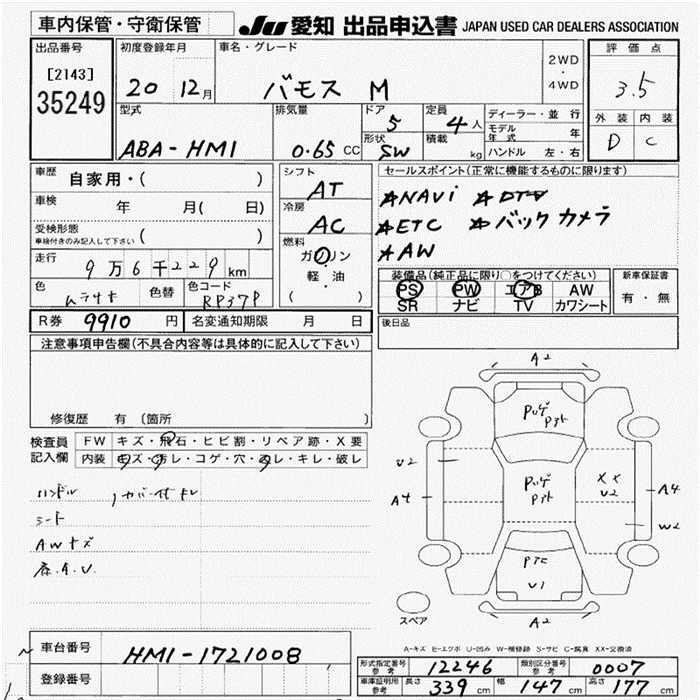 車内保管・守衛保管
JU 愛知 出品申込書 JAPAN USED CAR DEALERS ASSOCIATION
出品番号
[2143]
35249
初度登録年月
20 12月
車名・グレード
バモス M
2WD
・
4WD
評価点
3.5
外装 内装
D C
型式
ABA-HM1
排気量
0.65 CC
ドア
5
形状
SW
定員
4人
積載
kg
ディーラー・並行
モデル年式 年
ハンドル 左・右
車歴
自家用・( )
車検
年 月( 日)
受検形態
車検付きのみ記入して下さい ( )
走行
9万6千229km
色
ムラサキ
色替
色コード
RP37P
シフト
AT
冷房
AC
燃料
ガソリン
・
軽・油
( )
セールスポイント(正常に機能するものに限ります)
★NAVi ★DTV
★ETC ★バックカメラ
★AW
装備品(純正品に限り○をつけてください)
PS PW エアB AW
SR ナビ TV カワシート
新車保証書
有・無
R券 9910 円
名変通知期限 月 日
後日品
注意事項申告欄(不具合内容等は具体的に記入して下さい)
修復歴 有(箇所 )
検査員
記入欄
FW キズ・飛石・ヒビ割・リペア跡・X要
内装 キズ・汚レ・コゲ・穴・スレ・キレ・破レ
ハンドル
シート
AWキズ
A2
プレゲ
アト
U2
A4
プレゲ
アト
XX
U2
A4
W2
PTC
U1
A2
スペア
A-キズ E-エクボ U-凹み W-補修跡 S-サビ C-腐食 XX-交換済
車台番号
HM1-1721008
登録番号
形式指定番号
参考
12246
類別区分番号
参考
0007
車庫証明用
参考
長さ 339 cm 幅 147 cm 高さ 177 cm